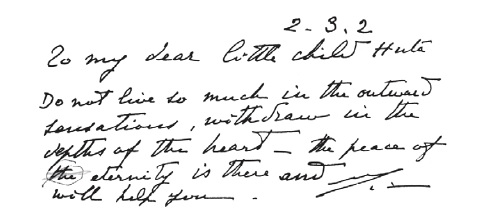 2-3.2
To my dear little child Huta
Do not live so much in the outward
sensations, withdraw in the
depths of the heart — the peace of
the eternity is there and
will help you.